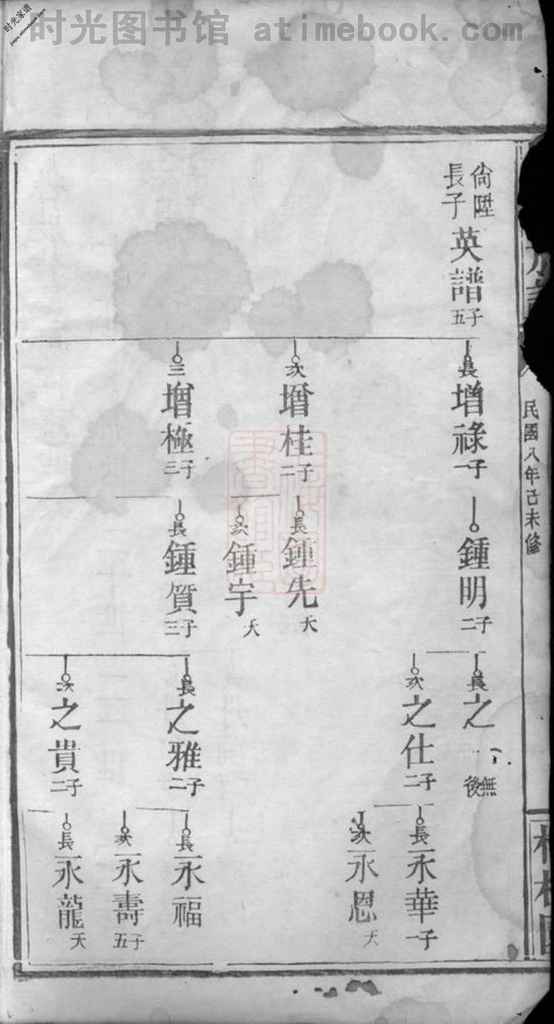 时光图书馆 atimebook.com
时光家谱
民國八年己未修
尙陞
長子
英譜
五子
長 增祿 一子
次 增桂 二子
三 增極 三子
鍾明 二子
長 鍾先 夭
次 鍾宇 夭
長 鍾質 三子
長 之
無後
次 之仕 二子
長 之雅 二子
次 之貴 二子
長 永華 一子
次 永恩 夭
長 永福
次 永壽 五子
長 永龍 夭